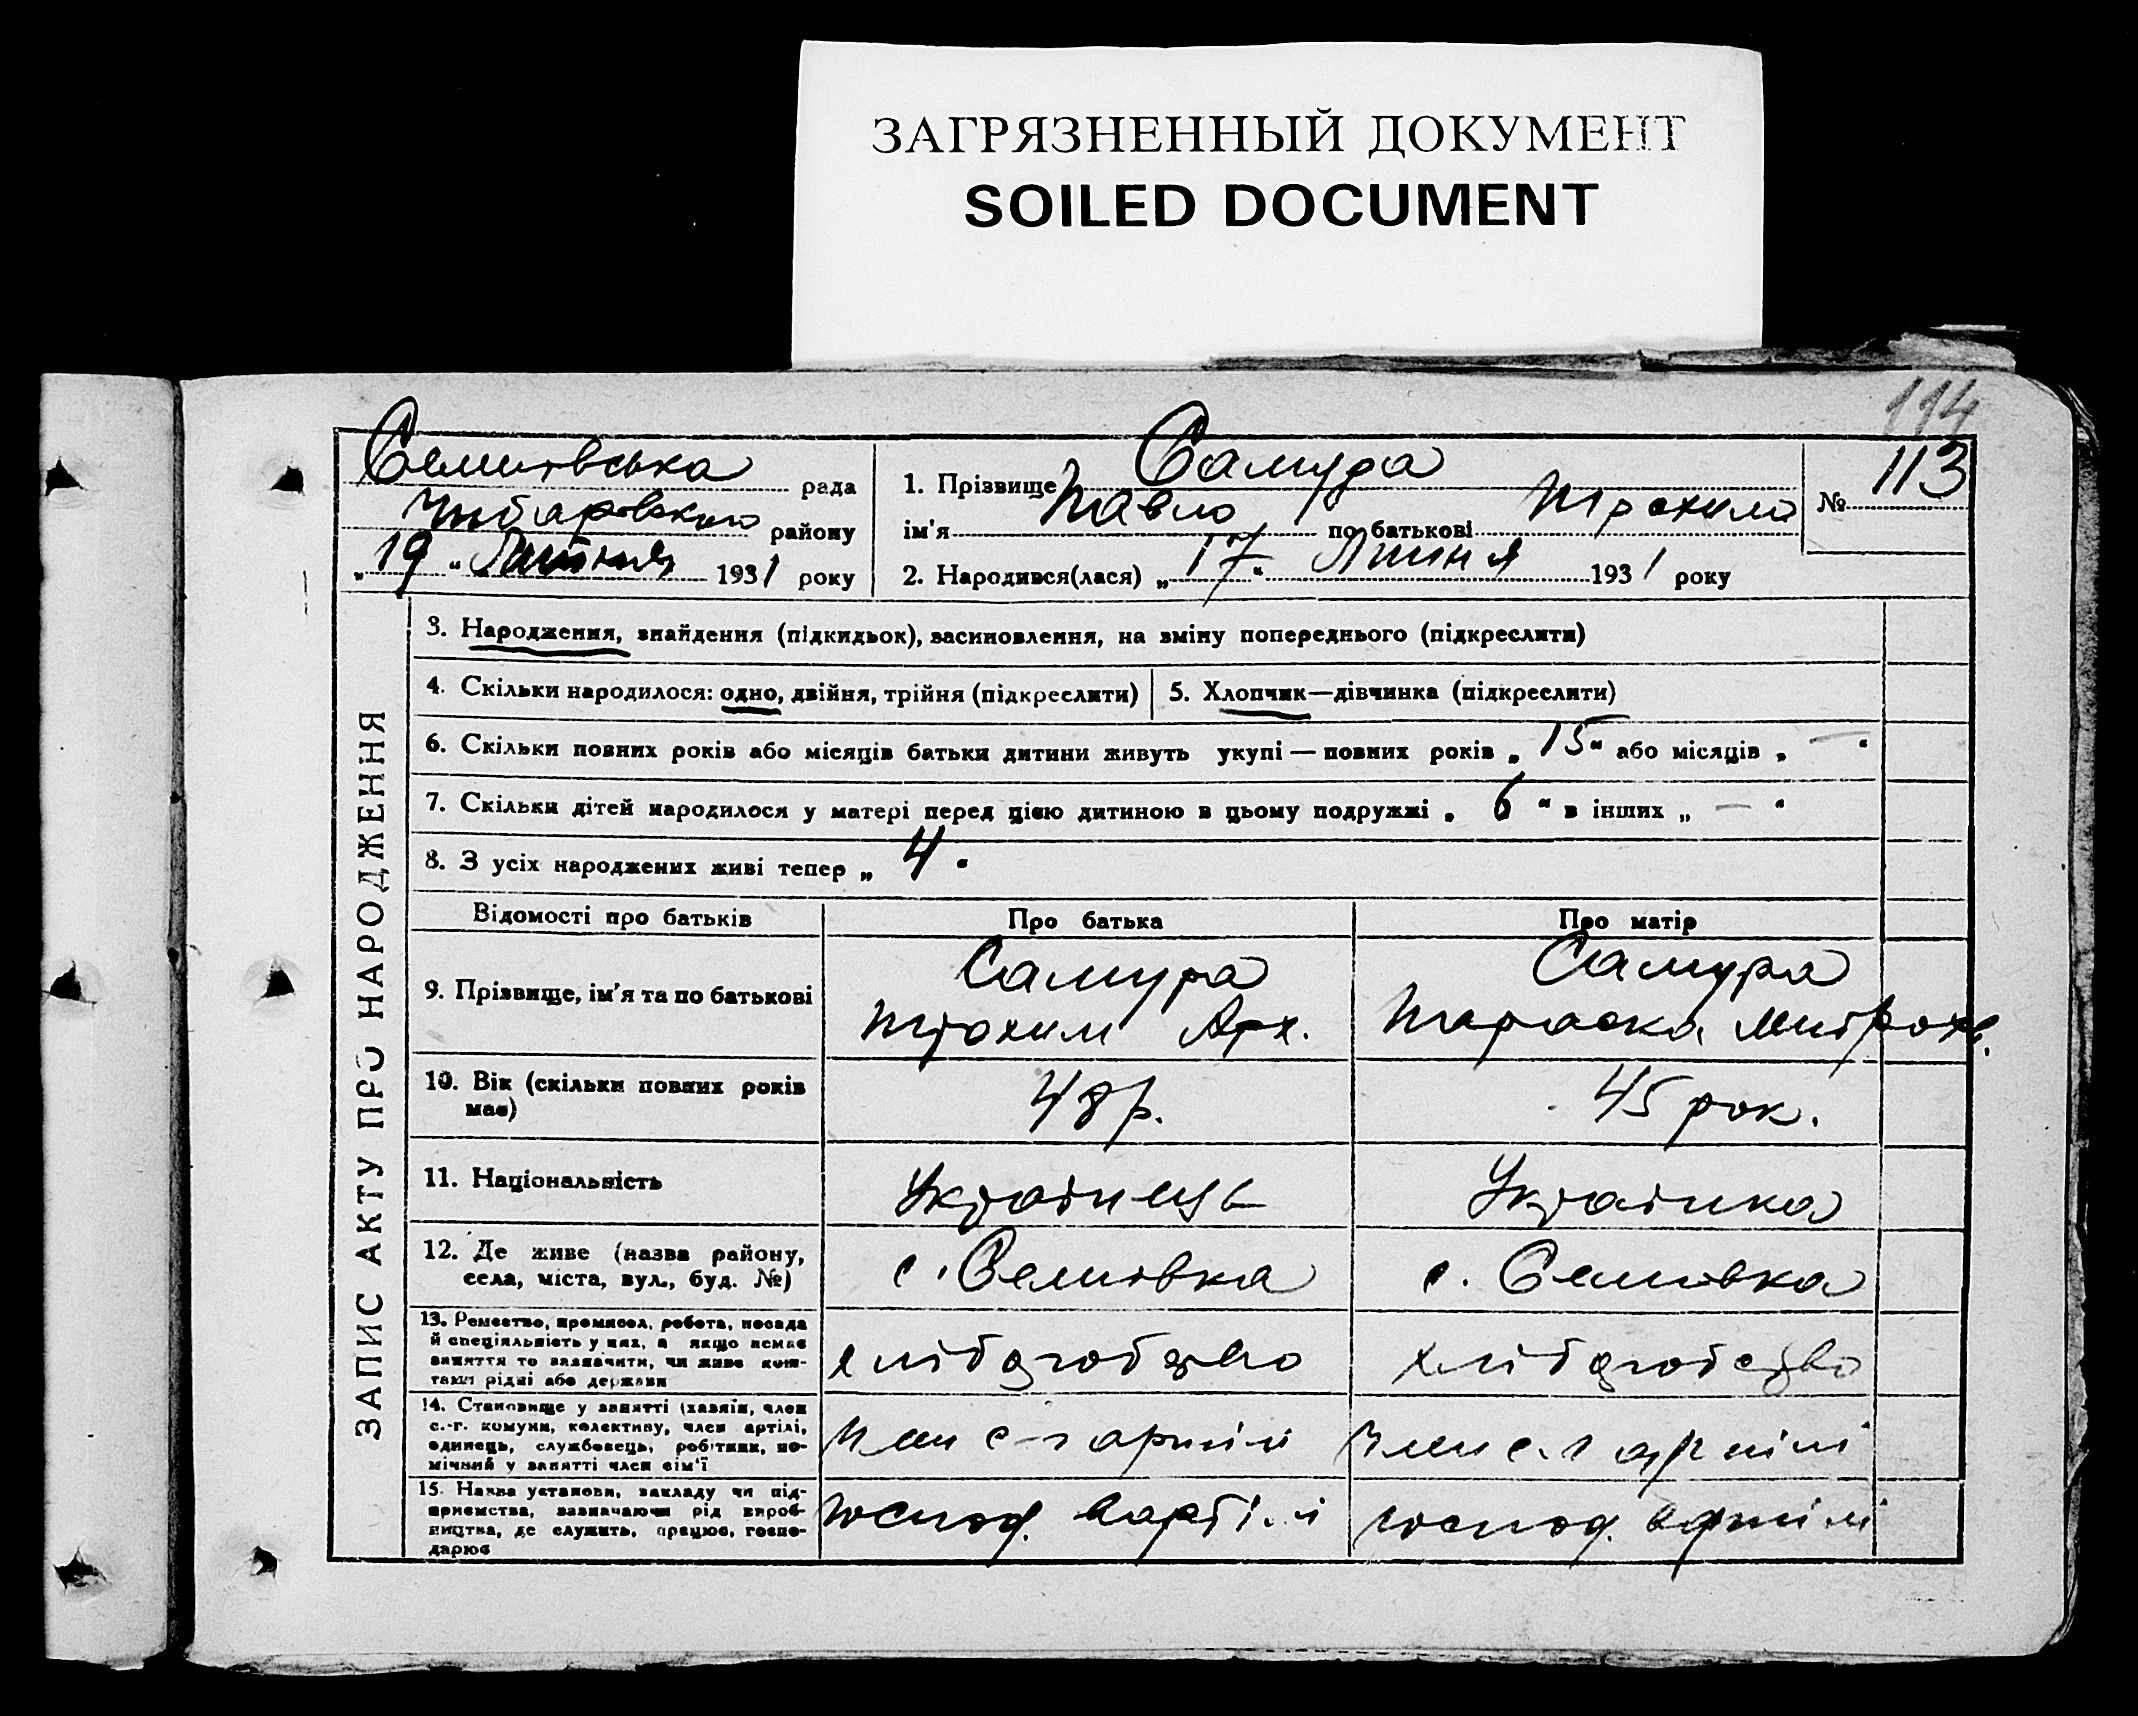 ЗАГРЯЗНЕННЫЙ ДОКУМЕНТ
SOILED DOCUMENT
114
Семиівська рада
району
„19“ Липня 1931 року
1. Прізвище Самура
ім'я Павло по батькові Трохимо
№ 113
2. Народився(лася) „17“ Липня 1931 року
ЗАПИС АКТУ ПРО НАРОДЖЕННЯ
3. Народження, знайдення (підкидьок), засиновлення, на зміну попереднього (підкреслити)
4. Скільки народилося: одно, двійня, трійня (підкреслити) 5. Хлопчик—дівчинка (підкреслити)
6. Скільки повних років або місяців батьки дитини живуть укупі — повних років „15“ або місяців „—“
7. Скільки дітей народилося у матері перед цією дитиною в цьому подружжі „6“ в інших „—“
8. З усіх народжених живі тепер „4“
Відомості про батьків Про батька Про матір
9. Прізвище, ім'я та по батькові
Самура
Трохим Арх.
Самура
Параска Митрохв.
10. Вік (скільки повних років
має)
48 р.
45 рок.
11. Національність
Українець
Українка
12. Де живе (назва району,
села, міста, вул., буд. №)
с. Семиівка
с. Семиівка
13. Ремество, промисел, робота, посада
й спеціяльність у них, а якщо немає
заняття то зазначити, чи живе кош-
тами рідні або держави
хліборобство
хліборобство
14. Становище у занятті (хазяїн, член
с.-г. комуни, колективу, член артілі,
одинець, службовець, робітник, по-
мічний у занятті член сім'ї
член с-г артілі
член с.г артілі
15. Назва установи, закладу чи під-
приємства, зазначаючи рід вироб-
ництва, де служить, працює, госпо-
дарює
господ. в артілі
господ. в артілі